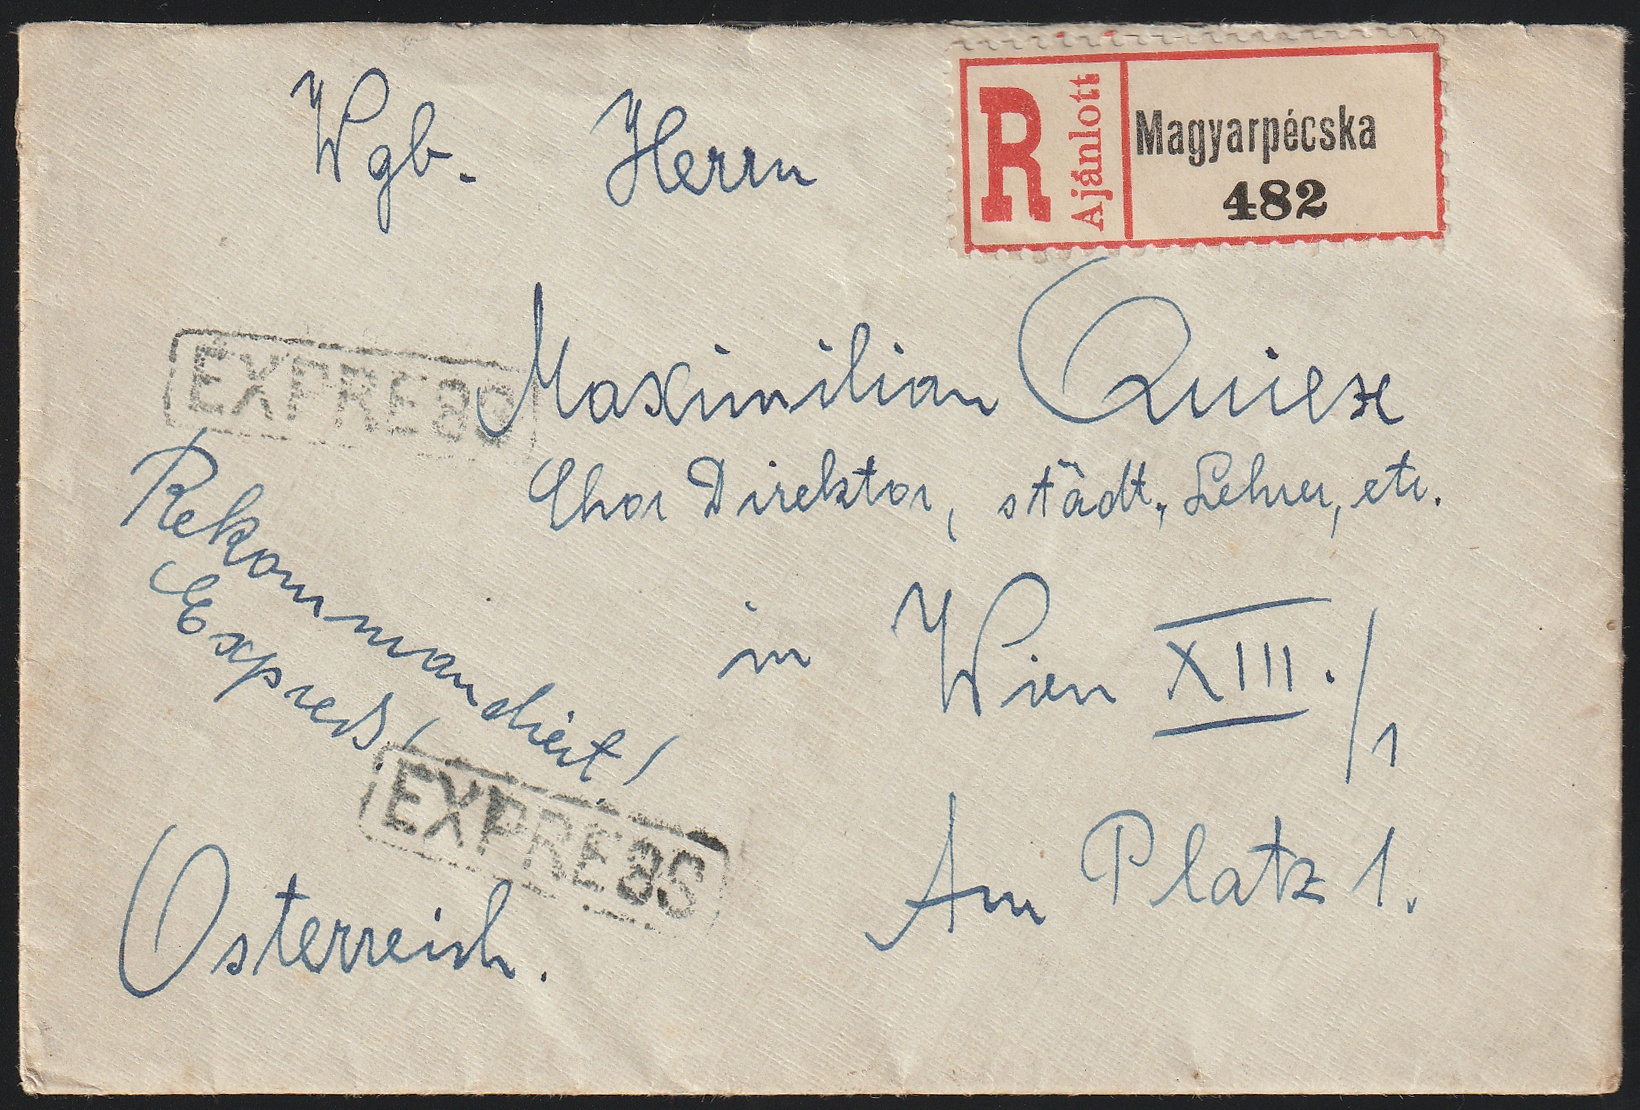 Wgb. Herrn
R Ajánlott Magyarpécska
482
Maximilian
EXPRESS
Chor Direktor, städt. Lehrer, etc.
Rekommandiert!
Expreß!
in Wien XIII./1
EXPRESS
Am Platz 1.
Österreich.